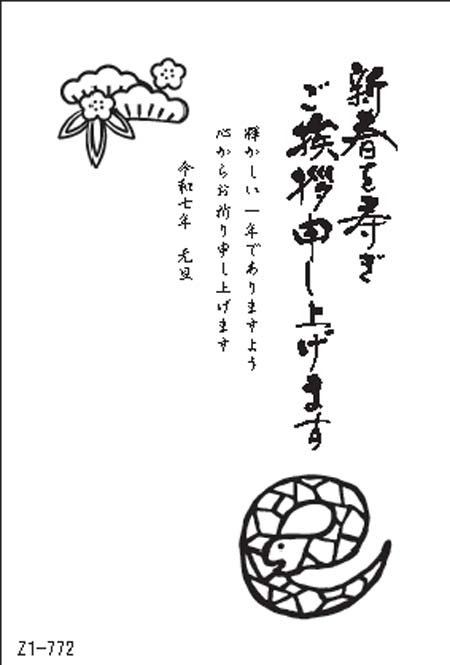 新春を寿ぎ
ご挨拶申し上げます
輝かしい一年でありますよう
心からお祈り申し上げます
令和七年 元旦
Z1-772